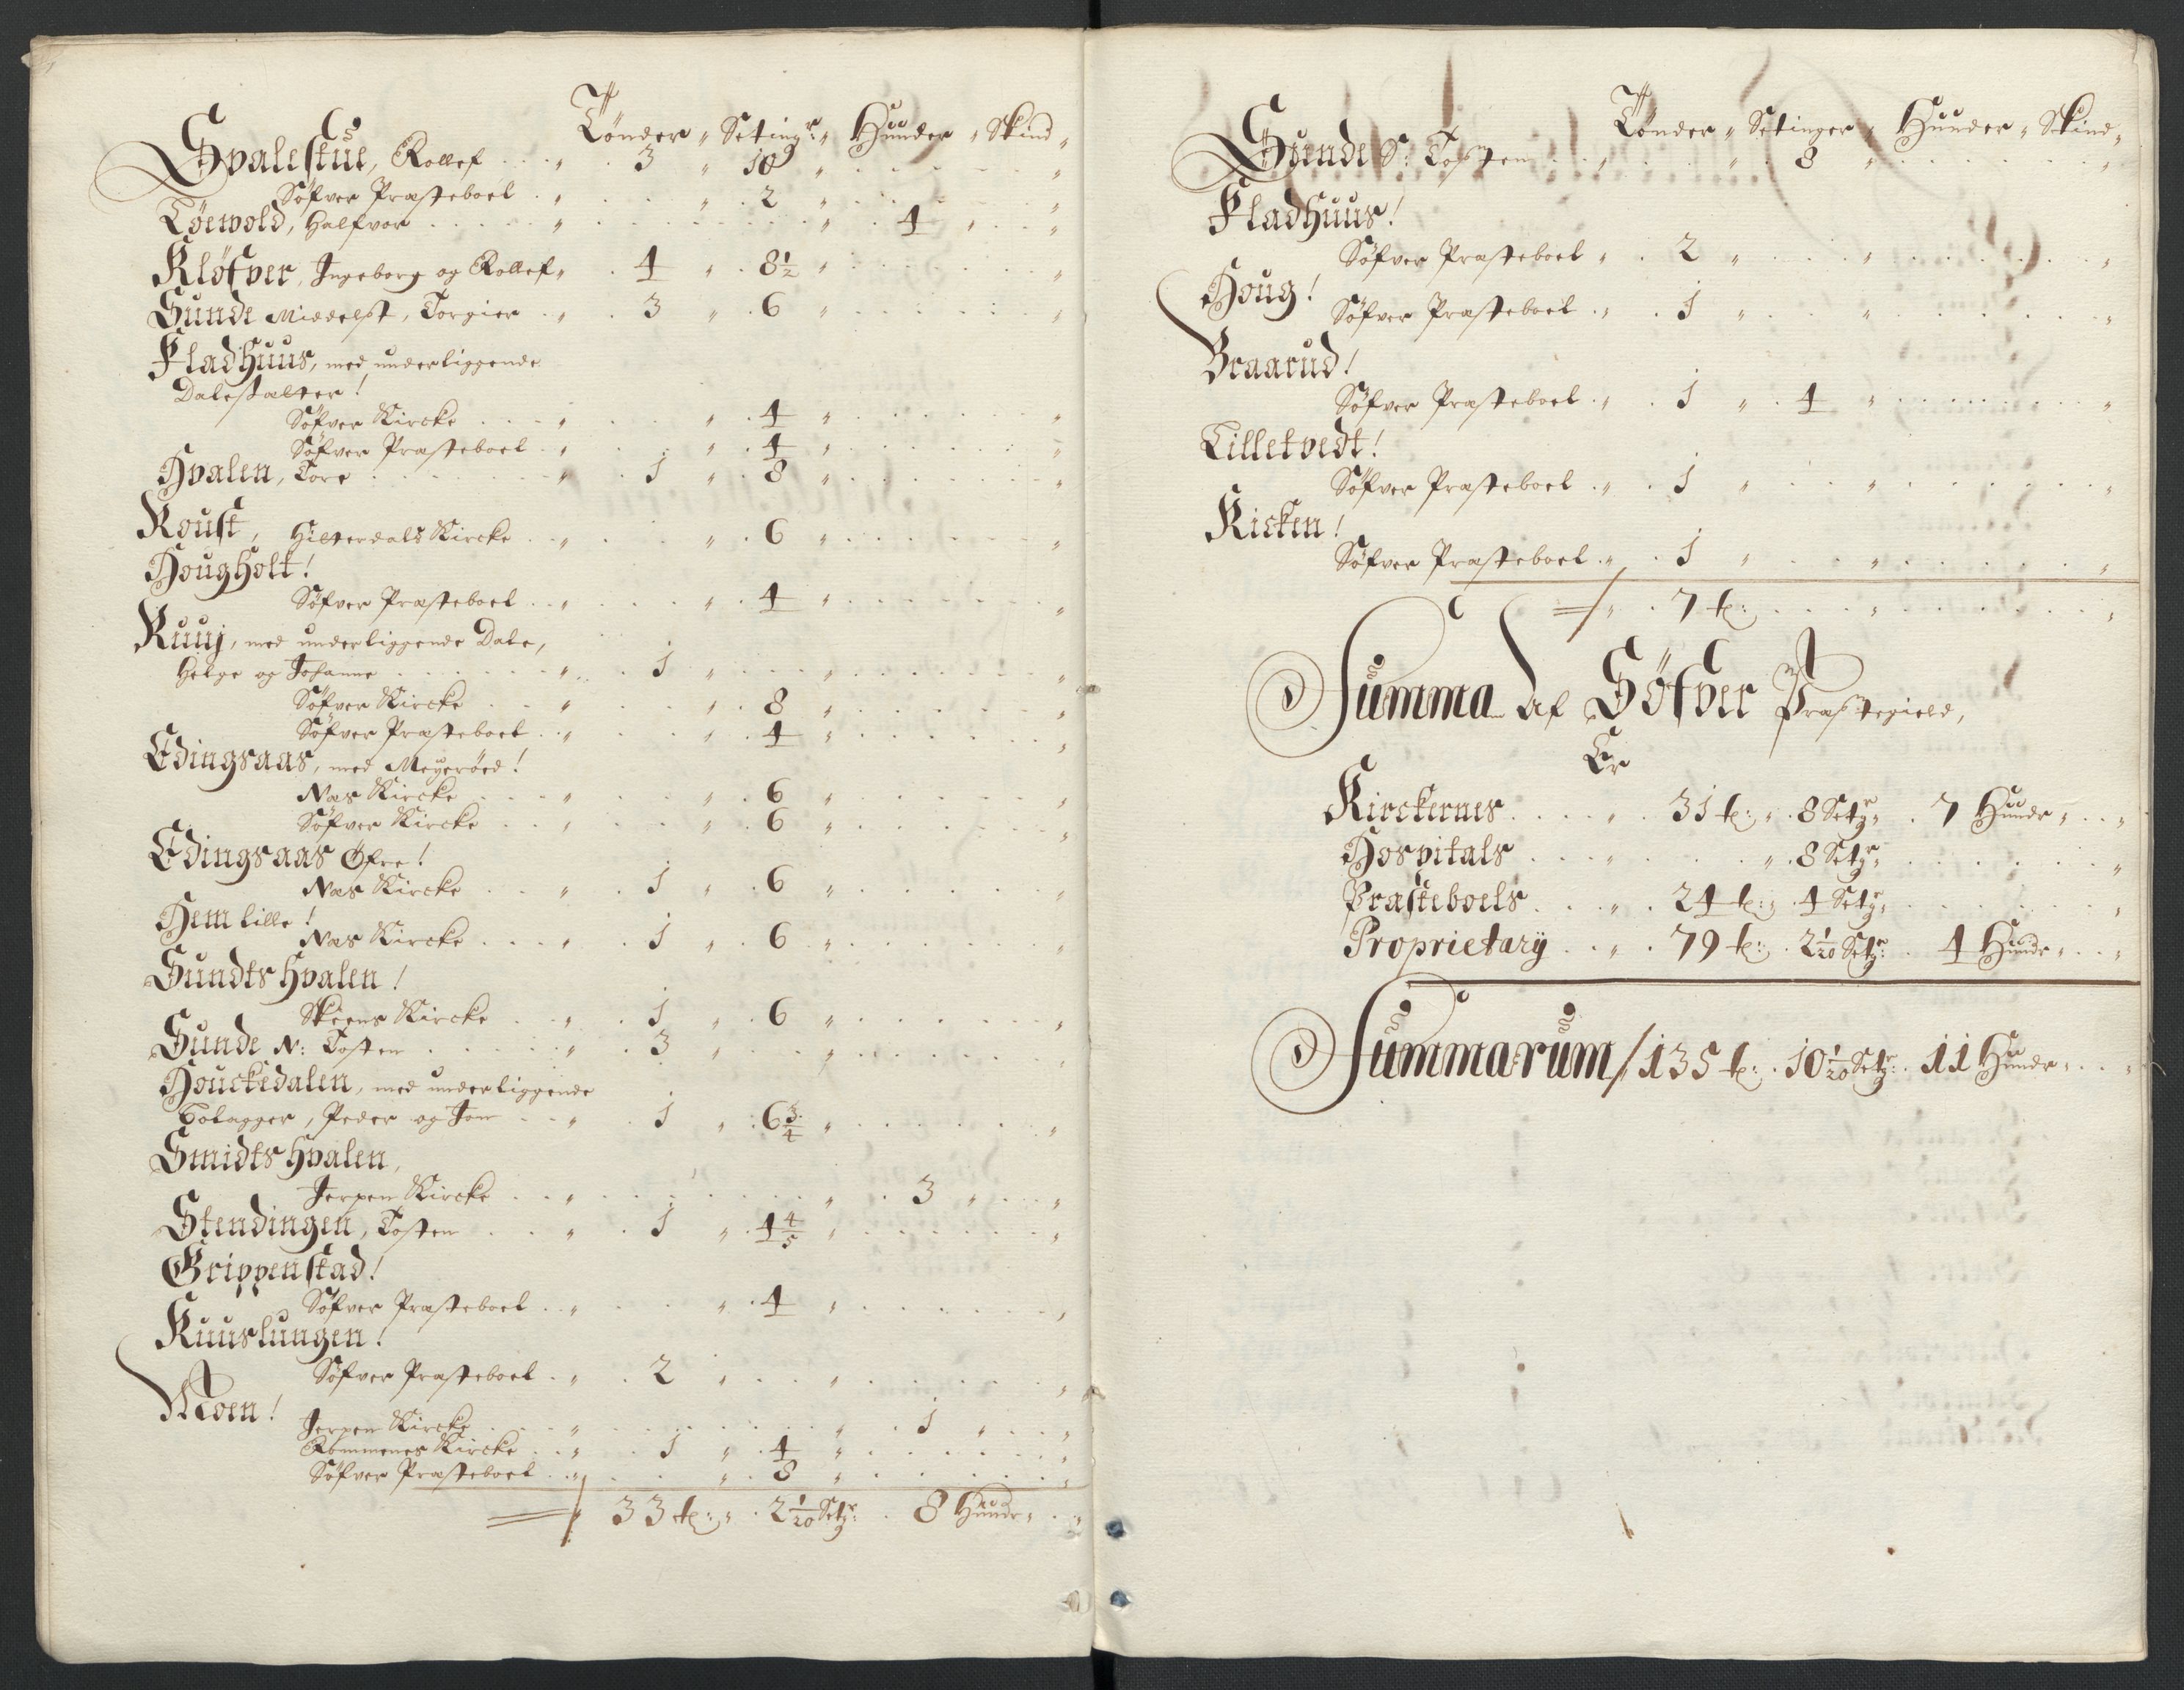 Tönder „ Setingr „ Hunder „ Skind „
Svalestue, Rollef . . „ . 3 „ 10 „
Söfver Præsteboel . „ . . „ . 2 „
Töewold, Halfvor . . . „ . . . „ . 4 „ . „
Klöfver, Ingeborg og Rollef „ . 4 „ . 8½ „
Sunde Middelst, Torgier . „ . 3 „ . 6 „
Fladhuus, med underliggende
Dalestalter!
Söfver Kircke . . . „ . . „ . 4 „
Söfver Præsteboel . „ . . „ . 4 „
Hvalen, Tore . . . „ . 1 „ . 8 „
Roust, Hitterdals Kircke . „ . . „ . 6 „
Hougholt!
Söfver Præsteboel . „ . . „ . 4 „
Ruuj, med underliggende Dale,
Helge og Johanne . . . „ . 1 „
Söfver Kircke . . „ . . „ . 8 „
Söfver Præsteboel . „ . . „ . 4 „
Edingsaas, med Meyeröed!
Næs Kircke . . . „ . . „ . 6 „
Söfver Kircke . . „ . . „ . 6 „
Edingsaas Øfre!
Næs Kircke . . „ . 1 „ . 6 „
Hem lille!
Næs Kircke . . . „ . 1 „ . 6 „
Sundts Hvalen!
Skeens Kircke . . „ . 1 „ . 6 „
Sunde N: Tosten . . . „ . 3 „
Houckedalen, med underliggende
Tolagger, Peder og Jon . . „ . 1 „ . 6¾ „
Smidts Hvalen,
Jerpen Kircke . . „ . . . „ . 3 „ . „
Stendingen, Tosten . . „ . 1 „ . 4⅘ „
Grippenstad!
Söfver Præsteboel . „ . . „ . 4 „
Ruuslungen!
Söfver Præsteboel . „ . 2 „
Moen!
Jerpen Kircke . . „ . . . „ . 1 „ . „
Rommenes Kircke . „ . 1 „ . 4 „
Söfver Præsteboel . „ . . „ . 8 „
33 t: „ . 2 1/20 Setgr: . 8 Hundr „ . „
Tönder „ Setinger „ Hunder „ Skind „
Sunde S: Tosten . . „ . . „ . 8 „
Fladhuus!
Söfver Præsteboel „ . 2 „
Houg!
Söfver Præsteboel . „ . 1 „
Braarud!
Söfver Præsteboel . „ . 1 „ . 4 „
Lilletvedt!
Söfver Præsteboel . „ . 1 „
Ricken!
Söfver Præsteboel . „ . 1 „
„ . 7 t: . . . „
Summa Af Söfver Præstegield,
Er
Kirckernes . . . „ . 31 t: „ . 8 Setgr „ . 7 Hundr „ . „
Hospitals . . . „ . . „ . 8 Setgr „
Præsteboels . . . „ . 24 t: „ . 4 Setgr „
Proprietarij . . „ . 79 t: . 2 1/20 Setgr: . 4 Hundr „ . „
Summarum / 135 t: . 10 1/20 Setgr: . 11 Hundr „ . „